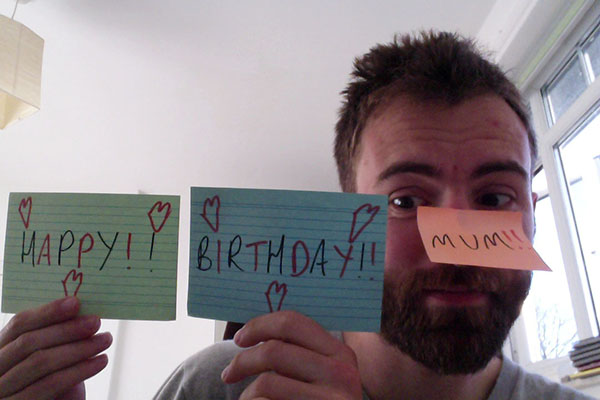 HAPPY!!
BIRTHDAY!!
MUM!!